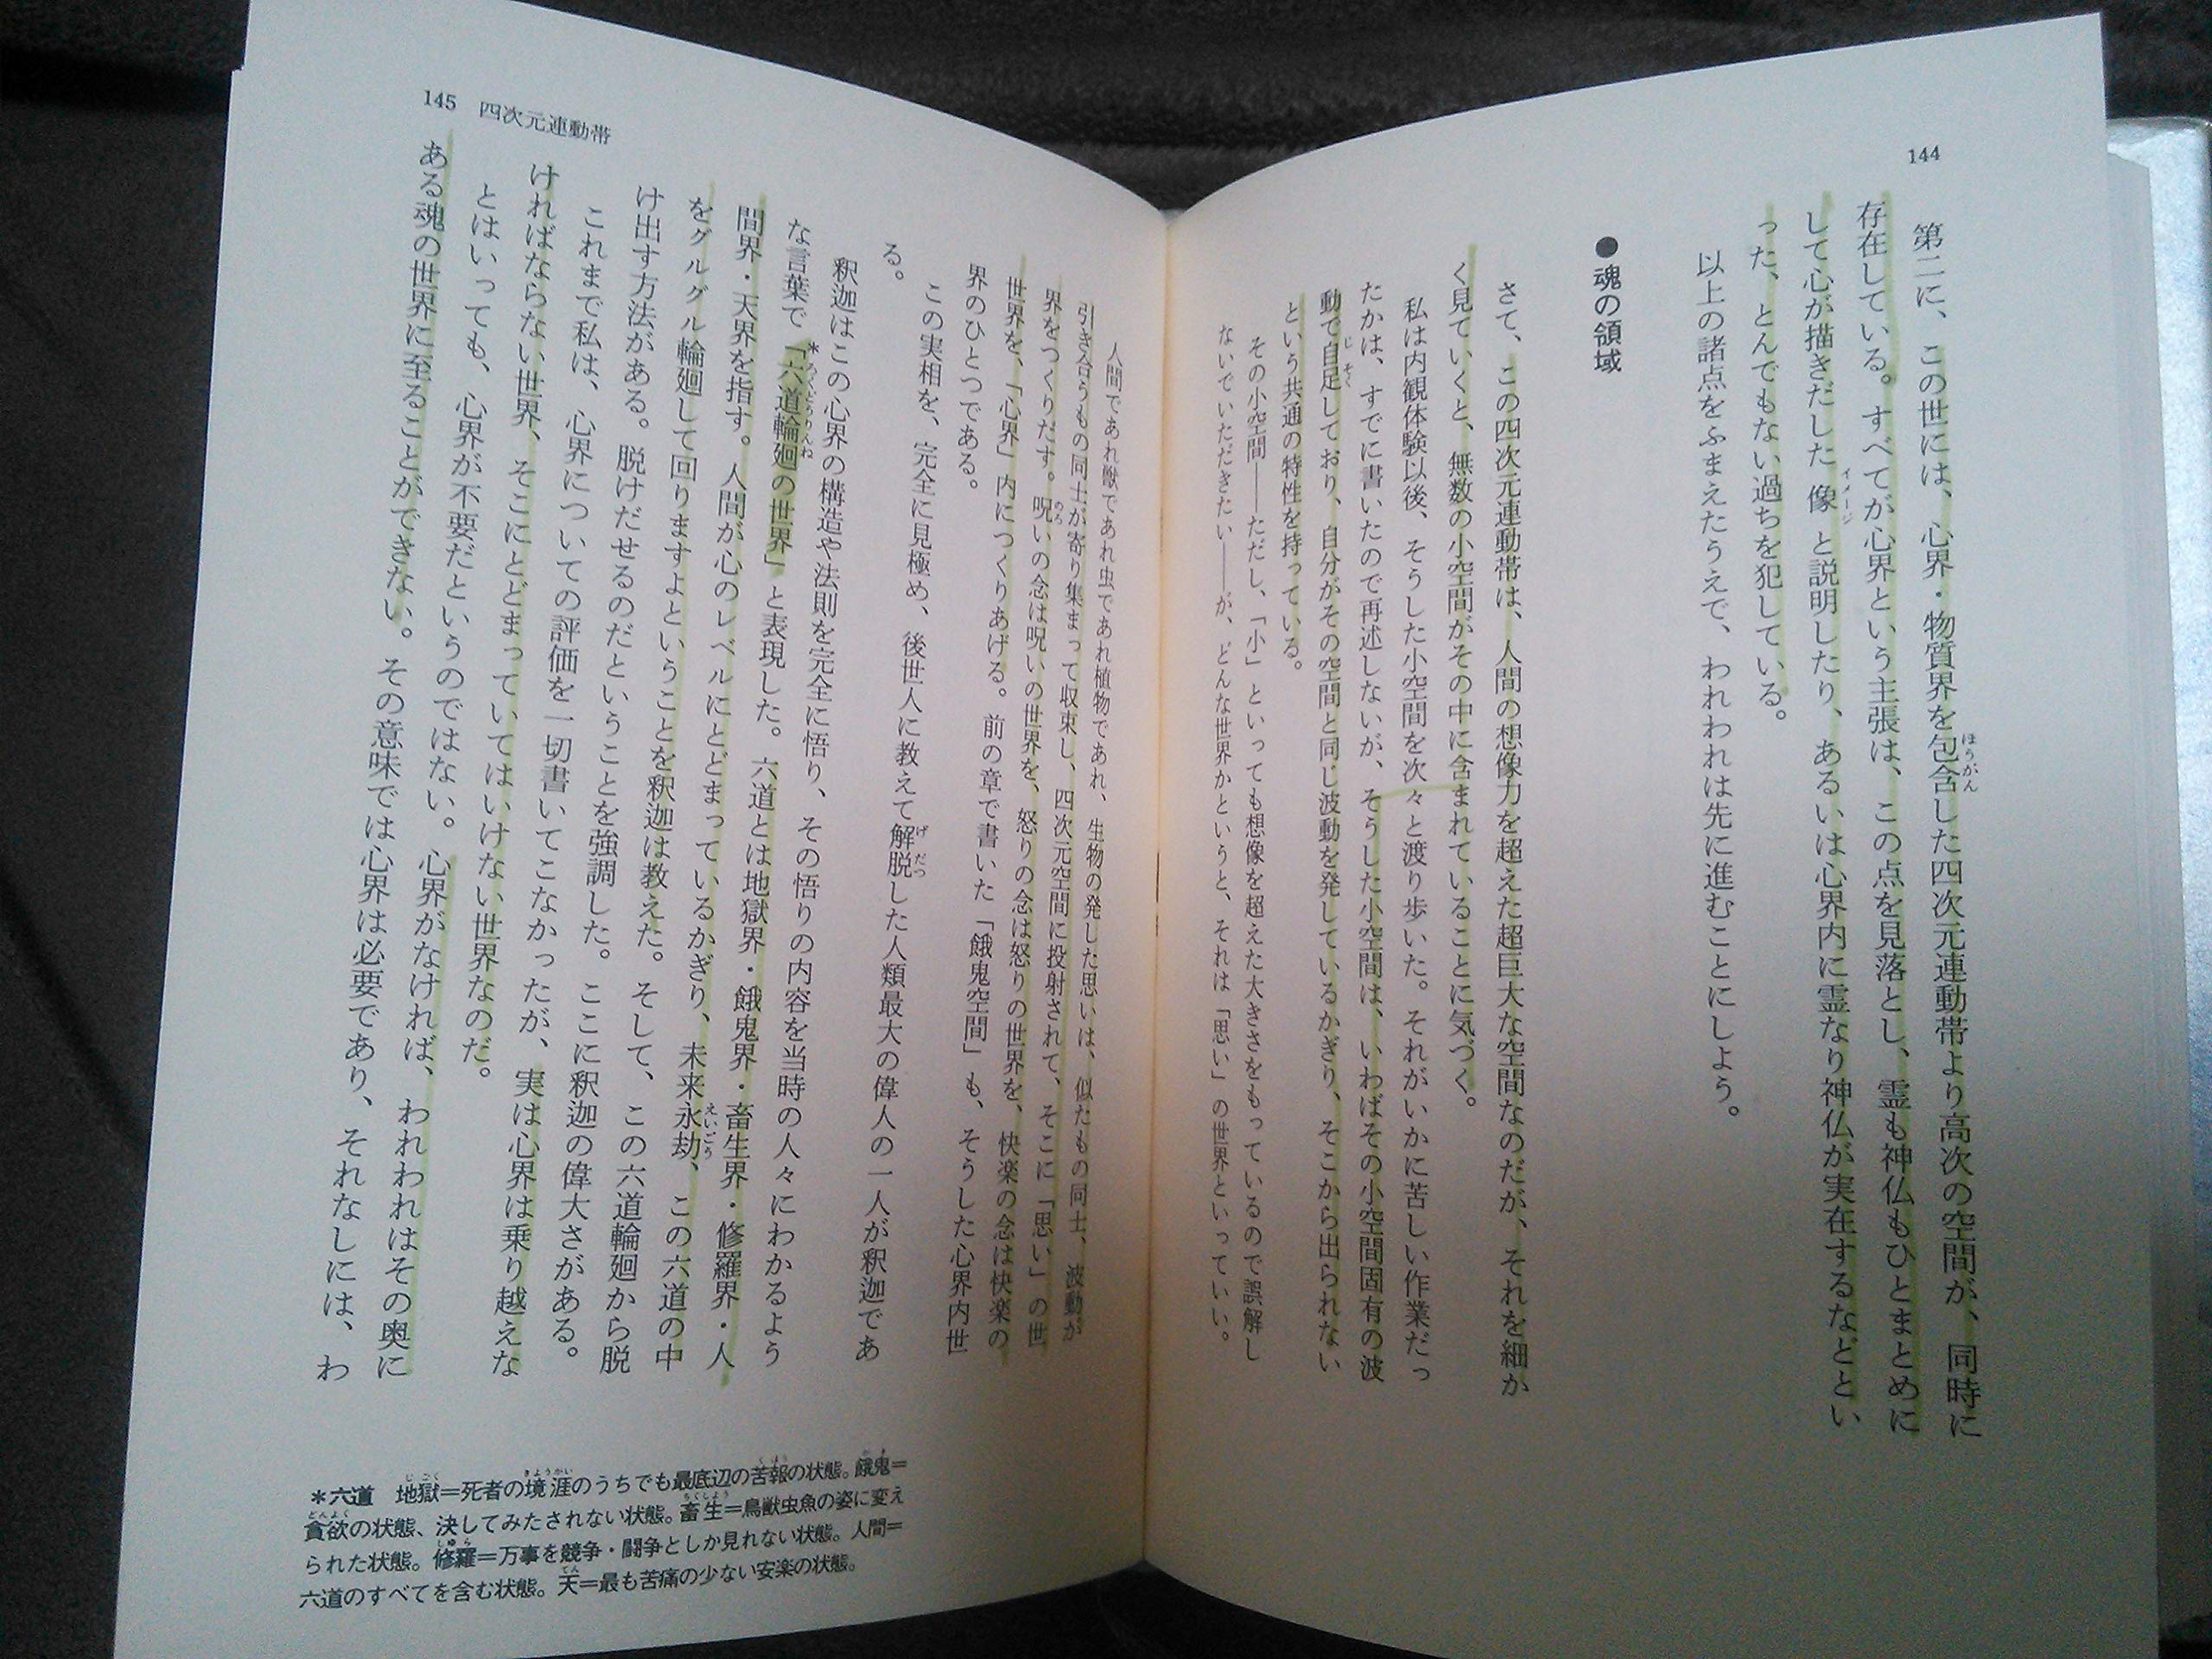 144
第二に、この世には、心界・物質界を包含した四次元連動帯より高次の空間が、同時に
存在している。すべてが心界という主張は、この点を見落とし、霊も神仏もひとまとめに
して心が描きだした像と説明したり、あるいは心界内に霊なり神仏が実在するなどとい
った、とんでもない過ちを犯している。
以上の諸点をふまえたうえで、われわれは先に進むことにしよう。
●魂の領域
さて、この四次元連動帯は、人間の想像力を超えた超巨大な空間なのだが、それを細か
く見ていくと、無数の小空間がその中に含まれていることに気づく。
私は内観体験以後、そうした小空間を次々と渡り歩いた。それがいかに苦しい作業だっ
たかは、すでに書いたので再述しないが、そうした小空間は、いわばその小空間固有の波
動で自足しており、自分がその空間と同じ波動を発しているかぎり、そこから出られない
という共通の特性を持っている。
その小空間——ただし、「小」といっても想像を超えた大きさをもっているので誤解し
ないでいただきたい——が、どんな世界かというと、それは「思い」の世界といっていい。
人間であれ獣であれ虫であれ植物であれ、生物の発した思いは、似たもの同士、波動が
引き合うもの同士が寄り集まって収束し、四次元空間に投射されて、そこに「思い」の世
界をつくりだす。呪いの念は呪いの世界を、怒りの念は怒りの世界を、快楽の念は快楽の
世界を、「心界」内につくりあげる。前の章で書いた「餓鬼空間」も、そうした心界内世
界のひとつである。
この実相を、完全に見極め、後世人に教えて解脱した人類最大の偉人の一人が釈迦であ
る。
釈迦はこの心界の構造や法則を完全に悟り、その悟りの内容を当時の人々にわかるよう
な言葉で「*六道輪廻の世界」と表現した。六道とは地獄界・餓鬼界・畜生界・修羅界・人
間界・天界を指す。人間が心のレベルにとどまっているかぎり、未来永劫、この六道の中
をグルグル輪廻して回りますよということを釈迦は教えた。そして、この六道輪廻から脱
け出す方法がある。脱けだせるのだということを強調した。ここに釈迦の偉大さがある。
これまで私は、心界についての評価を一切書いてこなかったが、実は心界は乗り越えな
ければならない世界、そこにとどまっていてはいけない世界なのだ。
とはいっても、心界が不要だというのではない。心界がなければ、われわれはその奥に
ある魂の世界に至ることができない。その意味では心界は必要であり、それなしには、わ
*六道 地獄=死者の境涯のうちでも最底辺の苦報の状態。餓鬼=
貪欲の状態、決してみたされない状態。畜生=鳥獣虫魚の姿に変え
られた状態。修羅=万事を競争・闘争としか見れない状態。人間=
六道のすべてを含む状態。天=最も苦痛の少ない安楽の状態。
145 四次元連動帯